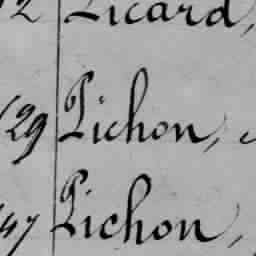 2 Licard,
129 Pichon,
147 Pichon,